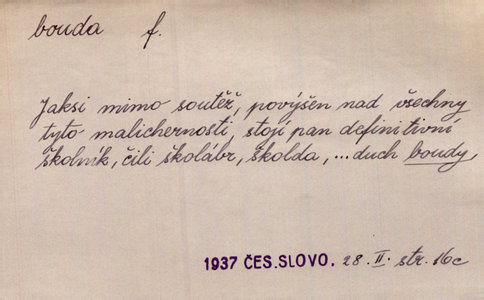 bouda f.
Jaksi mimo soutěž, povýšen nad všechny
tyto malichernosti, stojí pan definitivní
školník, čili školábr, školda, ...duch boudy,
1937 ČES. SLOVO. 28. II. str. 16c